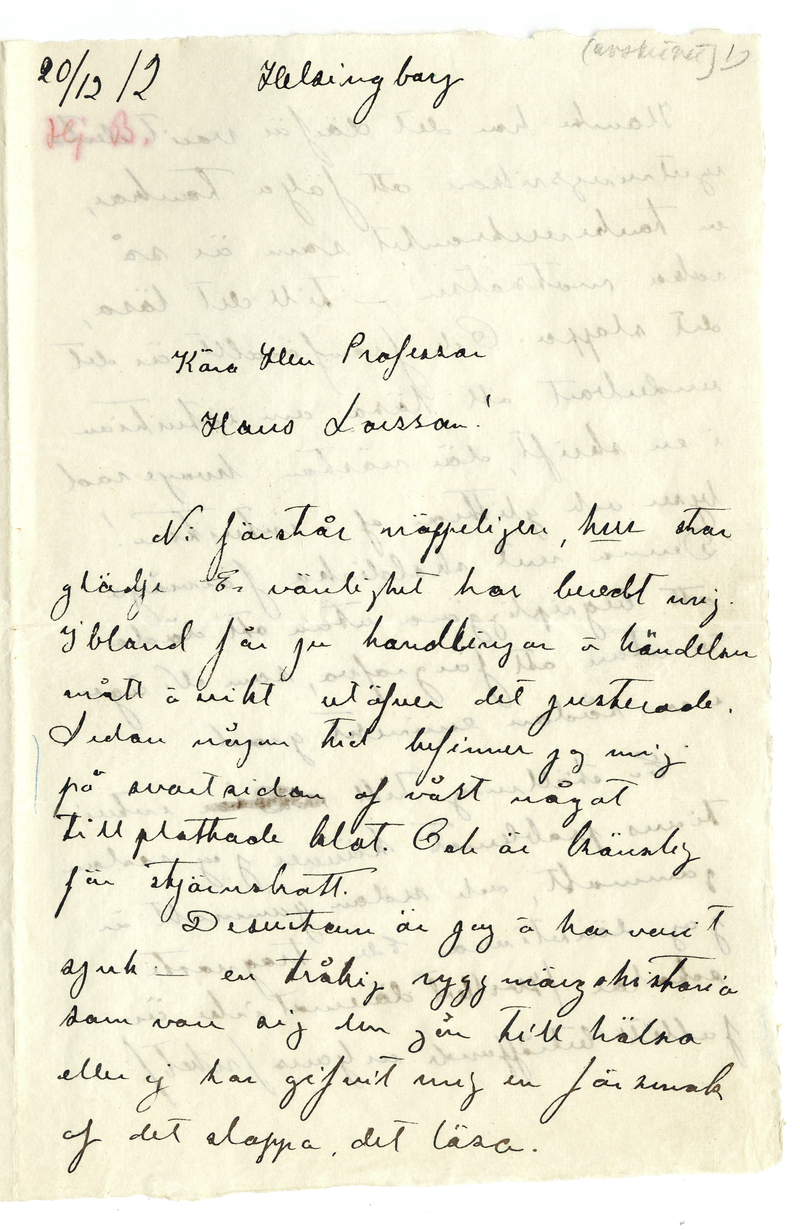 (avskrivet) 1)
20/12 12 Helsingborg
Hj. B.
Kära Herr Professor
Hans Larsson!
Ni förstår näppeligen, hur stor
glädje Er vänlighet har beredt mig.
Ibland får ju handlingar å händelser
mått å vikt utöfver det justerade.
Sedan någon tid befinner jag mig
på svartsidan af vårt något
tillplattade klot. Och är känslig
för stjärnskott.
Dessutom är jag å har varit
sjuk — en tråkig ryggmärgshistoria
som vare sig den går till hälsa
eller ej har gifvit mig en försmak
af det slappa, det lösa.